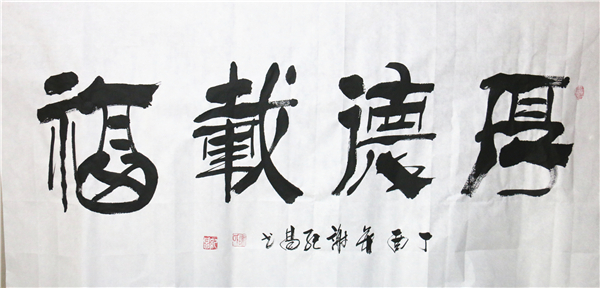 厚德載福
丁酉年謝紀昌书